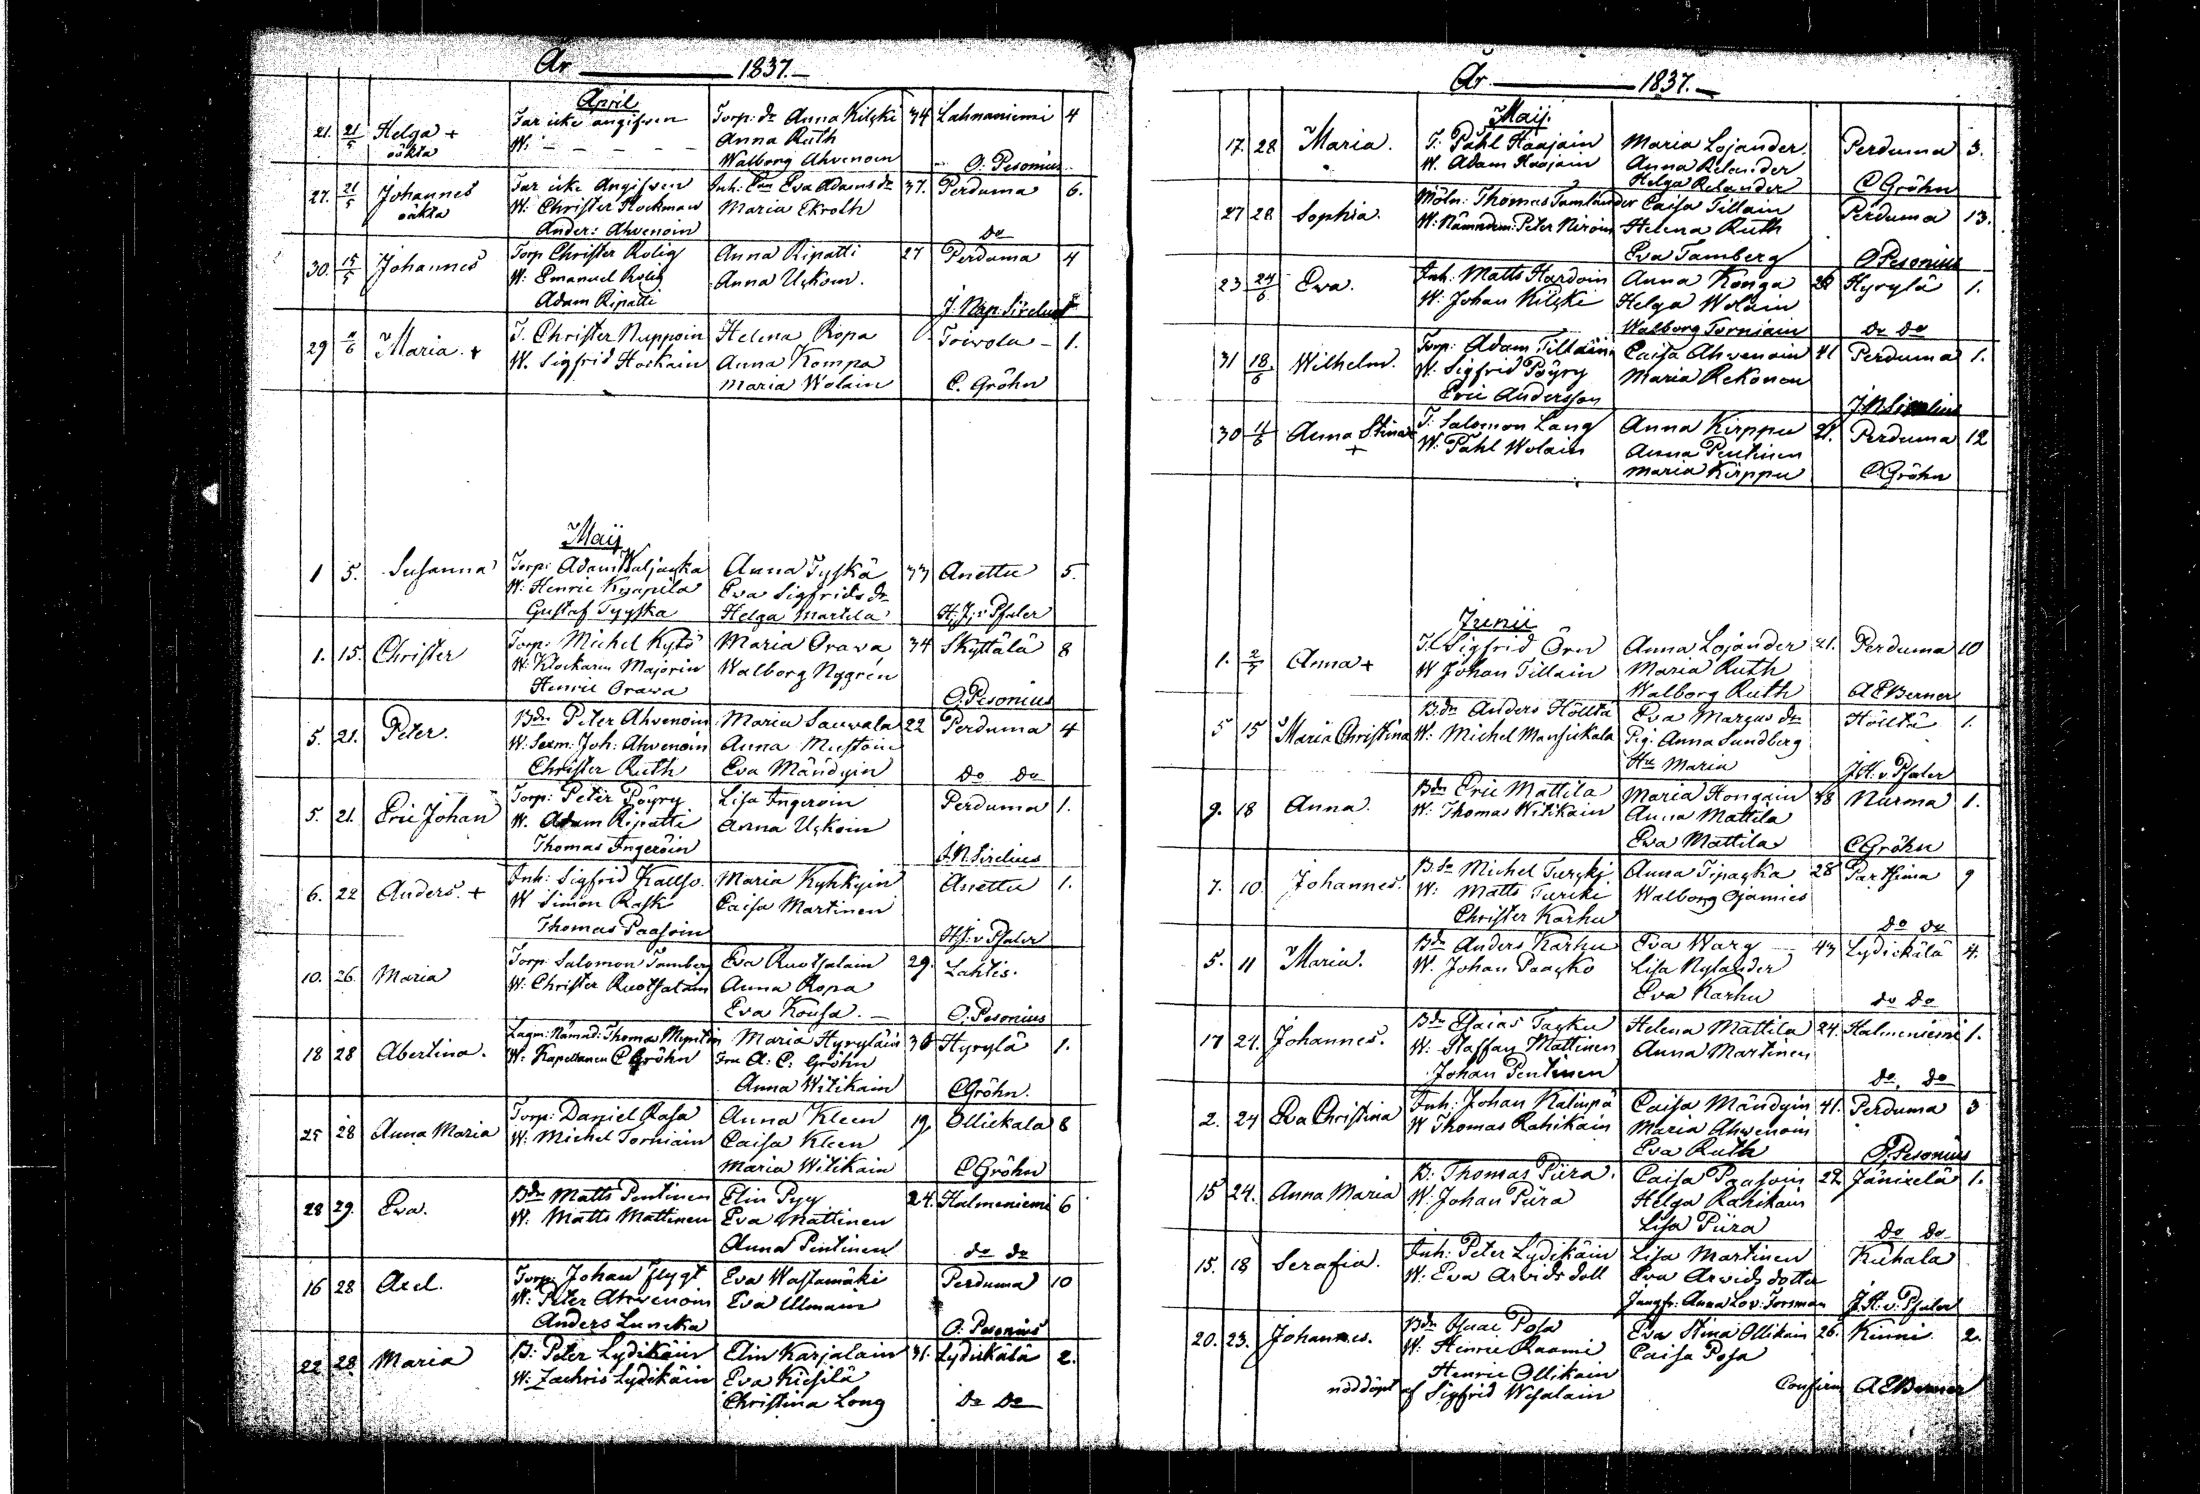 År 1837.
April
21. 21/5 Helga + Far icke angifven Torp: dr Anna Kilski 34 Lahnaniemi 4
oäkta W: - - - - - Anna Ruth
Walborg Ahvenoin O. Pesonius
27. 21/5 Johannes Far icke Angifven Inh: Eva Adams dr 37. Perduma 6.
oäkta W: Christer Ekroth
Ander: Ahvenoin do
30. 15/5 Johannes Torp Christer Rolig Anna Ripatti 27 Perduma 4
W: Emanuel Rolig Anna Uskoin.
Adam Ripatti J. Nap: Sirelius
29 /6 Maria. + T. Christer Nuppoin Helena Ropa Toivola - 1.
W. Sigfrid Hoskain Anna Kompa
Maria Wolain C. Gröhn
Maij
1 5. Susanna Torp: Adam Waljacka Anna Tyskä 33 Anettu 5.
W: Henric Kyapila Eva Sigfrids dr
Gustaf Tyyska Helga Martila H: J: v Pfaler
1. 15. Christer Torp: Michel Kytö Maria Orava 34 Skyttälä 8
W: Klockaren Majorin Walborg Nygrén
Henric Orava O. Pesonius
5. 21. Peter. Bdn Peter Ahvenoin Maria Sauvala 22 Perduma 4
W. Sexm: Joh: Ahvenoin Anna Mustoin
Christer Ruth Eva Mändyin do do
5. 21. Eric Johan Torp: Peter Pöyry Lisa Ingeroin Perduma 1.
W. Adam Ripatti Anna Uskoin
Thomas Ingeröin J. N. Sirelius
6. 22 Anders. + Inh: Sigfrid Kallio. Maria Kyhkyin Anettu 1.
W Simon Rask Caisa Martinen
Thomas Paasoin H. J. v Pfaler
10. 26. Maria Torp Salomon Tamberg Eva Ruotsalain 29. Lahtis.
W: Christer Ruotsalain Anna Ropa
Eva Kousa. - O. Pesonius
18 28 Abertina. Lagm: Nämnd: Thomas Maria Hyryläin 36 Hyrylä 1.
W: Kapellanen C Gröhn Fru A: C: Gröhn
Anna Witikain C Gröhn.
25 28 Anna Maria Torp: Daniel Rasa Anna Kleen 19. Ollickala 8
W: Michel Torniain Caisa Kleen
Maria Witikain C Gröhn
28 29. Eva. Bdn Matts Pentinen Elin Pyy 24. Halmeniemi 6
W. Matts Mattinen Eva Mattinen
Anna Pentinen do do
16 28 Axel. Torp: Johan Flygt Eva Wastamäki Perduma 10
W: Peter Ahvenoin Eva Ulmain
Anders Luncka O: Pesonius
22 28 Maria B: Peter Lydikäin Elin Karjalain 31. Lydickälä 2.
W: Zachris Lydikäin Eva Kiesilä
Christina Long do do
År 1837.
Maij.
17. 28 Maria. T. Påhl Haajain Maria Lojander Perduma 3.
W. Adam Haajain Anna Relander
Helga Relander C Gröhn
27 28 Sophia. Möln: Thomas Tamlander Caisa Tillain Perduma 13.
W: Nämndem: Peter Niroin Helena Ruth
Eva Tamberg O Pesonius
23 24/6 Eva. Inh: Matts Hardoin Anna Konga Hyrylä 1.
W: Johan Kilski Helga Wolain
Walborg Torniain do do
31 18/6 Wilhelm. Torp: Adam Tilläin Caisa Ahvenoin 41 Perduma 1.
W. Sigfrid Pöyry Maria Rekonen
Eric Andersson J. N. Sirelius
30 11/6 Anna Stina T. Salomon Lang Anna Kirppu 21. Perduma 12
+ W: Påhl Wolain Anna Pentinen
Maria Kirppu C Gröhn
Junii
1. 2/7 Anna + T. Sigfrid Örn Anna Lojander 21. Perduma 10
W Johan Tillain Maria Ruth
Walborg Ruth A E Berner
5 15 Maria Christina Bdn Anders Höllta Eva Margus dr Hölltä 1.
W: Michel Mansickala Pig: Anna Sundberg
Hu Maria J. H. v Pfaler
9. 18 Anna. Bdn Eric Mattila Maria Hongain 38 Nurma 1.
W: Thomas Witikain Anna Mattila
Eva Mattila C Gröhn
7. 10. Johannes. Bdn Michel Turski Anna Tipaska 28 Partsima 9
W: Matts Turski Walborg Ojamies
Christer Karhu do do
5. 11 Maria. Bdn Anders Karhu Eva Warg 43 Lydickälä 4.
W. Johan Paasko Lisa Nylander
Eva Karhu do do
17 24. Johannes. Bdn Esaias Tasku Helena Mattila 24. Halmeniemi 1.
W: Staffan Mattinen Anna Martinen
Johan Pentinen do do
2. 24 Eva Christina Inh: Johan Kalinpä Caisa Mändyin 41. Perduma 3
W Thomas Rahikain Maria Ahvenoin
Eva Ruth O: Pesonius
15 24. Anna Maria B. Thomas Piira. Caisa Paasoin 22. Jänixelä 1.
W: Johan Piira Helga Rahikain
Lisa Piira do do
15. 18 Serafia. Inh: Peter Lydikäin Lisa Martinen Kiehala
W: Eva Arvids dott Eva Arvids dotter
Jungfr: Anna Lov: Forsman J. H. v. Pfaler
20. 23. Johannes. Bdn Isaac Posa Eva Stina Ollikain 26. Kinni. 2.
W. Henric Raami Caisa Posa
Henric Ollikain
nöddöpt af Sigfrid Wesalain Confirm A E Berner